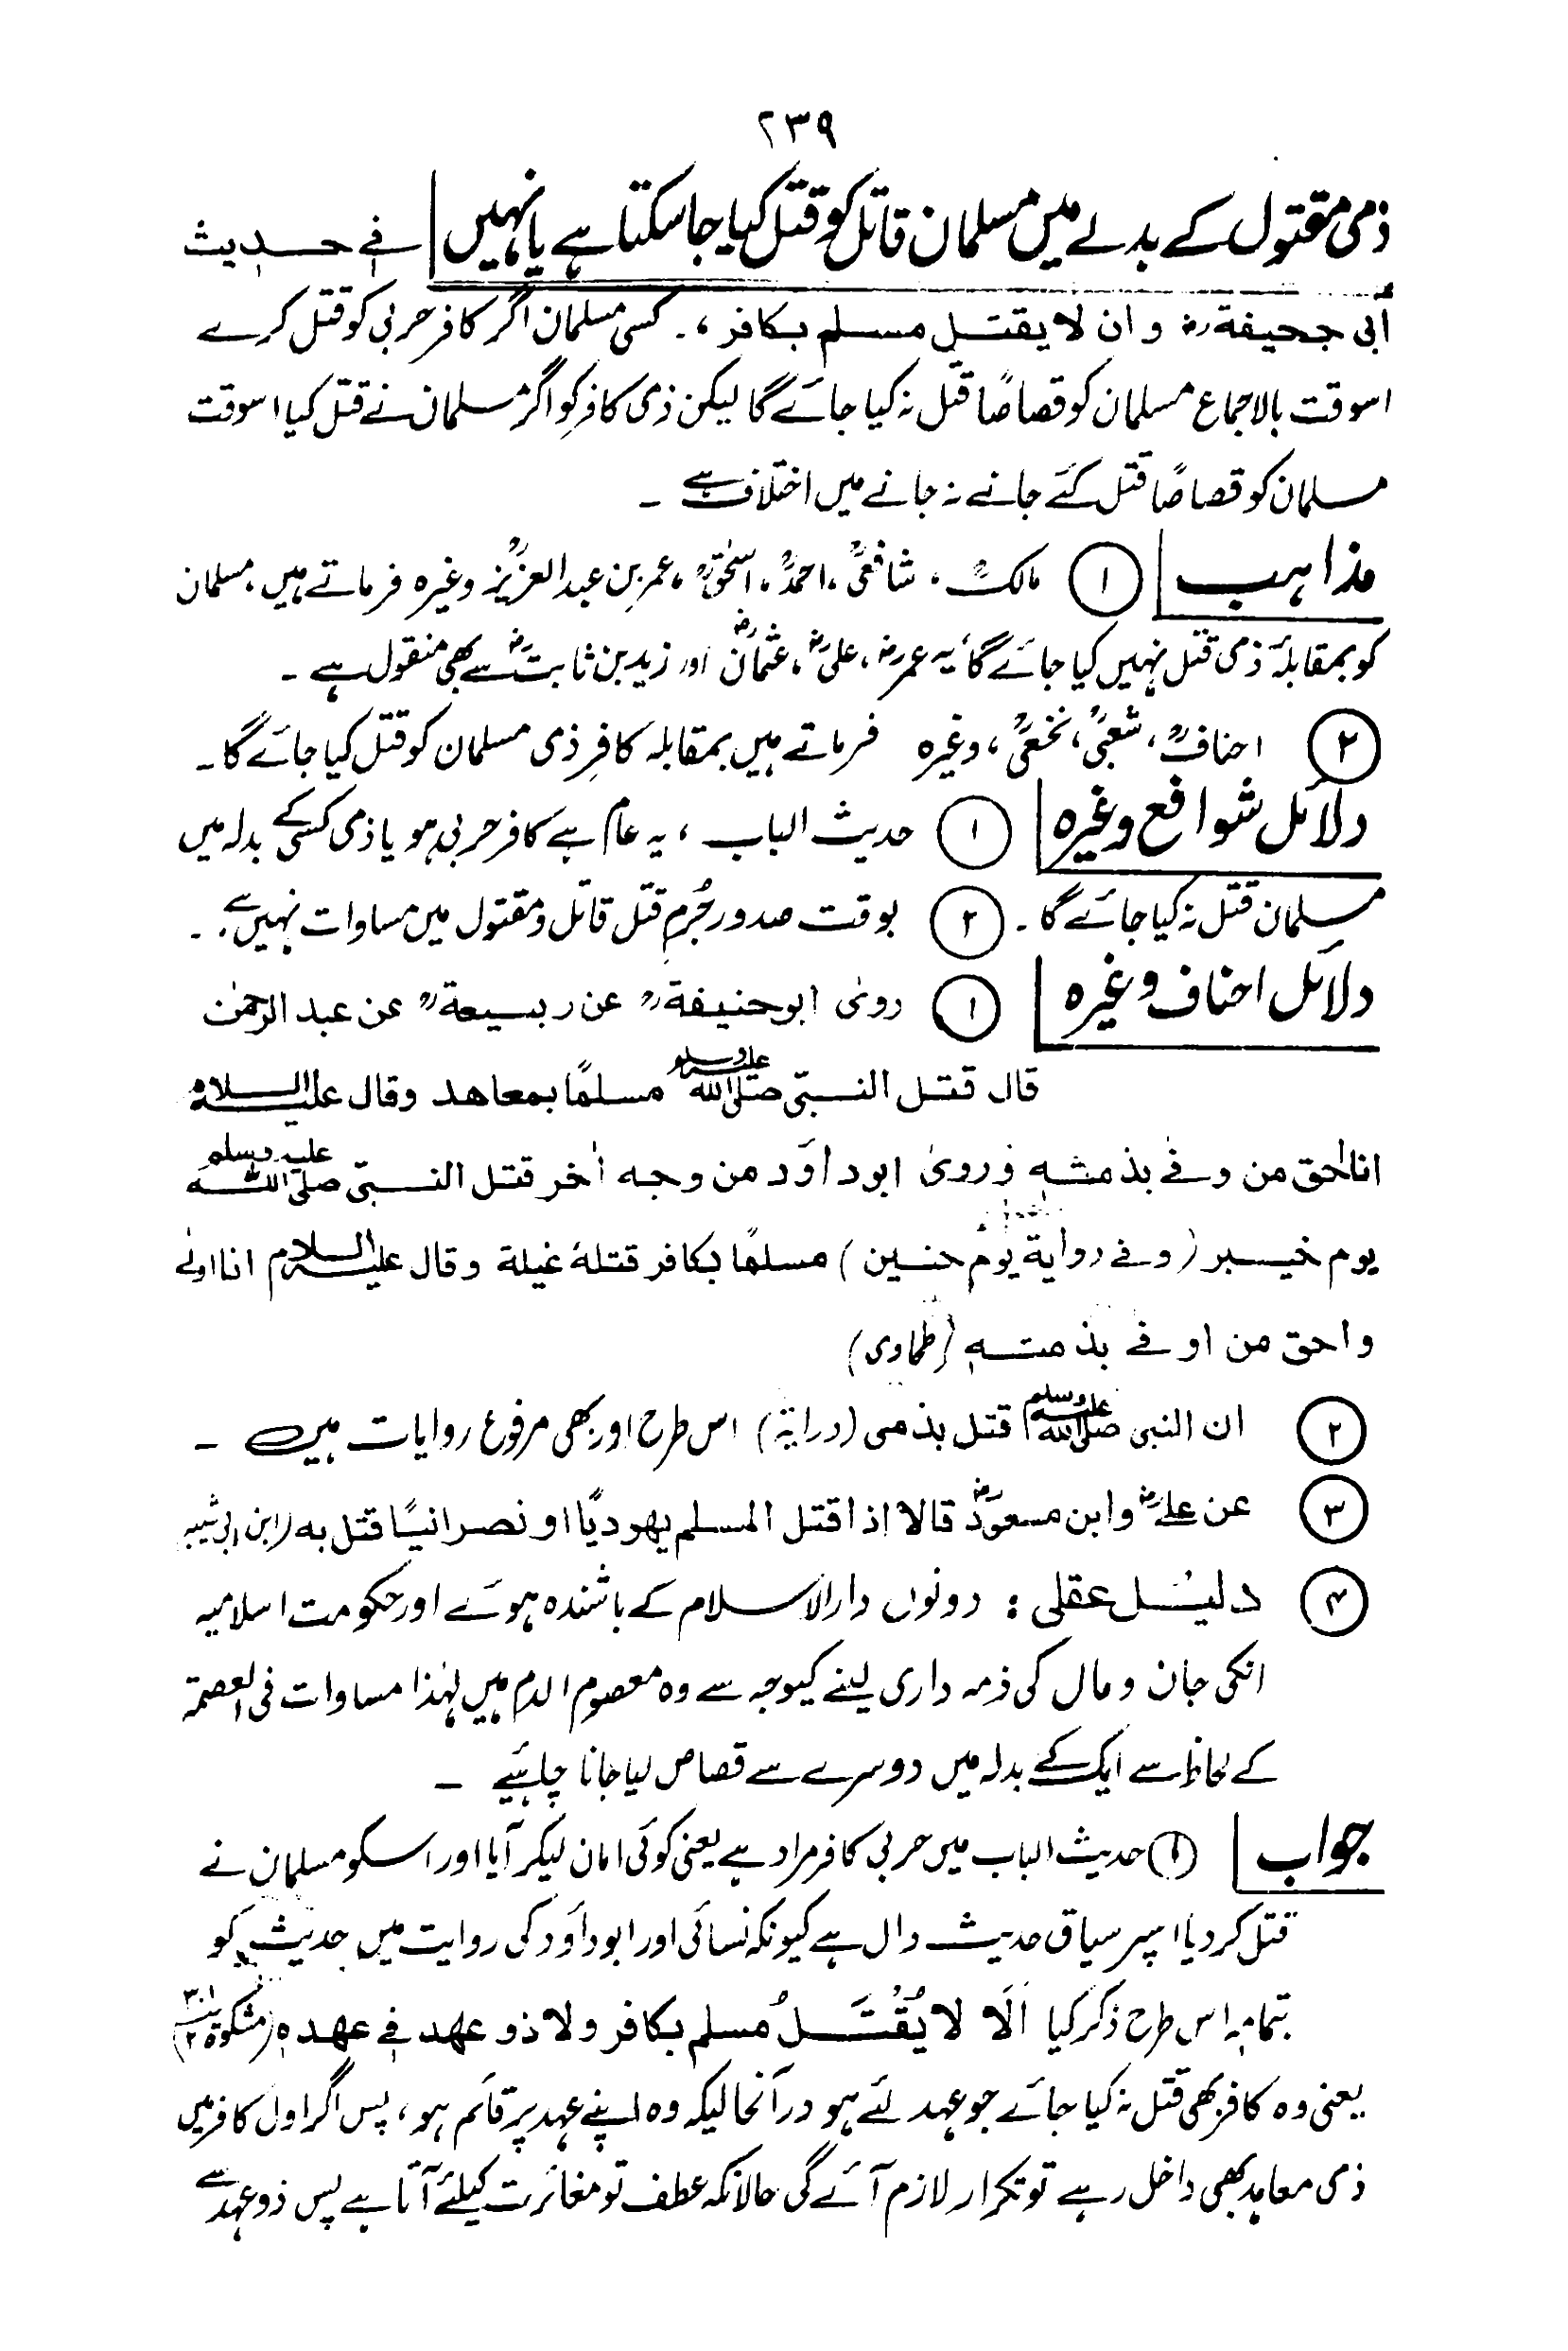 ۲۳۹
ذمی مقتول کے بدلے میں مسلمان قاتل کو قتل کیا جا سکتا ہے یا نہیں فی حدیث
أبی جحیفةؓ وان لا یقتل مسلم بکافر ،۔ کسی مسلمان اگر کافر حربی کو قتل کرے
اسوقت بالاجماع مسلمان کو قصاصًا قتل نہ کیا جائے گا لیکن ذمی کافر کو اگر مسلمان نے قتل کیا اسوقت
مسلمان کو قصاصًا قتل کئے جانے نہ جانے میں اختلاف ہے ۔
مذاہب ① مالکؒ ، شافعیؒ ، احمدؒ ، اسحٰقؒ ، عمر بن عبدالعزیزؒ وغیرہ فرماتے ہیں ، مسلمان
کو بمقابلۂ ذمی قتل نہیں کیا جائے گا ، یہ عمرؓ ، علیؓ ، عثمانؓ اور زید بن ثابتؓ سے بھی منقول ہے ۔
② احنافؒ ، شعبیؒ ، نخعیؒ ، وغیرہ فرماتے ہیں بمقابلہ کافرِ ذمی مسلمان کو قتل کیا جائے گا ۔
دلائل شوافع وغیرہ ① حدیث الباب ، یہ عام ہے کافر حربی ہو یا ذمی کسی کے بدلہ میں
مسلمان قتل نہ کیا جائے گا ۔ ② بوقت صدور جُرمِ قتل قاتل و مقتول میں مساوات نہیں ہے ۔
دلائل احناف وغیرہ ① روی ابوحنیفةؒ عن ربیعةؒ عن عبد الرحمٰن
قال قتل النبیّ صلی اللہ علیہ وسلم مسلمًا بمعاهد وقال علیہ السلام
انا احق من وفی بذمته وروی ابوداؤد من وجه أخر قتل النبیّ صلی اللہ علیہ وسلم
یوم خیبر (وفی روایة یوم حنین) مسلمًا بکافر قتلهٗ غیلة وقال علیہ السلام انا اولٰی
واحق من اوفی بذمته (طحاوی)
② ان النبی صلی اللہ علیہ وسلم قتل بذمی (درایة) اس طرح اور بھی مرفوع روایات ہیں ۔
③ عن علیؓ وابن مسعودؓ قالا اذا قتل المسلم یهودیًا او نصرانیًا قتل به (ابن ابی شیبہ
④ دلیل عقلی : دونوں دارالاسلام کے باشندہ ہوئے اور حکومت اسلامیہ
انکی جان و مال کی ذمہ داری لینے کیوجہ سے وہ معصوم الدم ہیں لہٰذا مساوات فی العصمۃ
کے لحاظ سے ایک کے بدلہ میں دوسرے سے قصاص لیا جانا چاہئیے ۔
جواب ① حدیث الباب میں حربی کافر مراد ہے یعنی کوئی امان لیکر آیا اور اسکو مسلمان نے
قتل کر دیا اسپر سیاق حدیث دال ہے کیونکہ نسائی اور ابوداؤد کی روایت میں حدیث کو
بتمامہٖ اس طرح ذکر کیا اَلَا لا یُقْتَلُ مسلم بکافر ولا ذو عهد فی عهده (مشکوٰۃ
یعنی وہ کافر بھی قتل نہ کیا جائے جو عہد لئے ہو درآنحالیکہ وہ اپنے عہد پر قائم ہو ، پس اگر اول کافر میں
ذمی معاہد بھی داخل رہے تو تکرار لازم آئے گی حالانکہ عطف تو مغائرت کیلئے آتا ہے پس ذو عہد سے